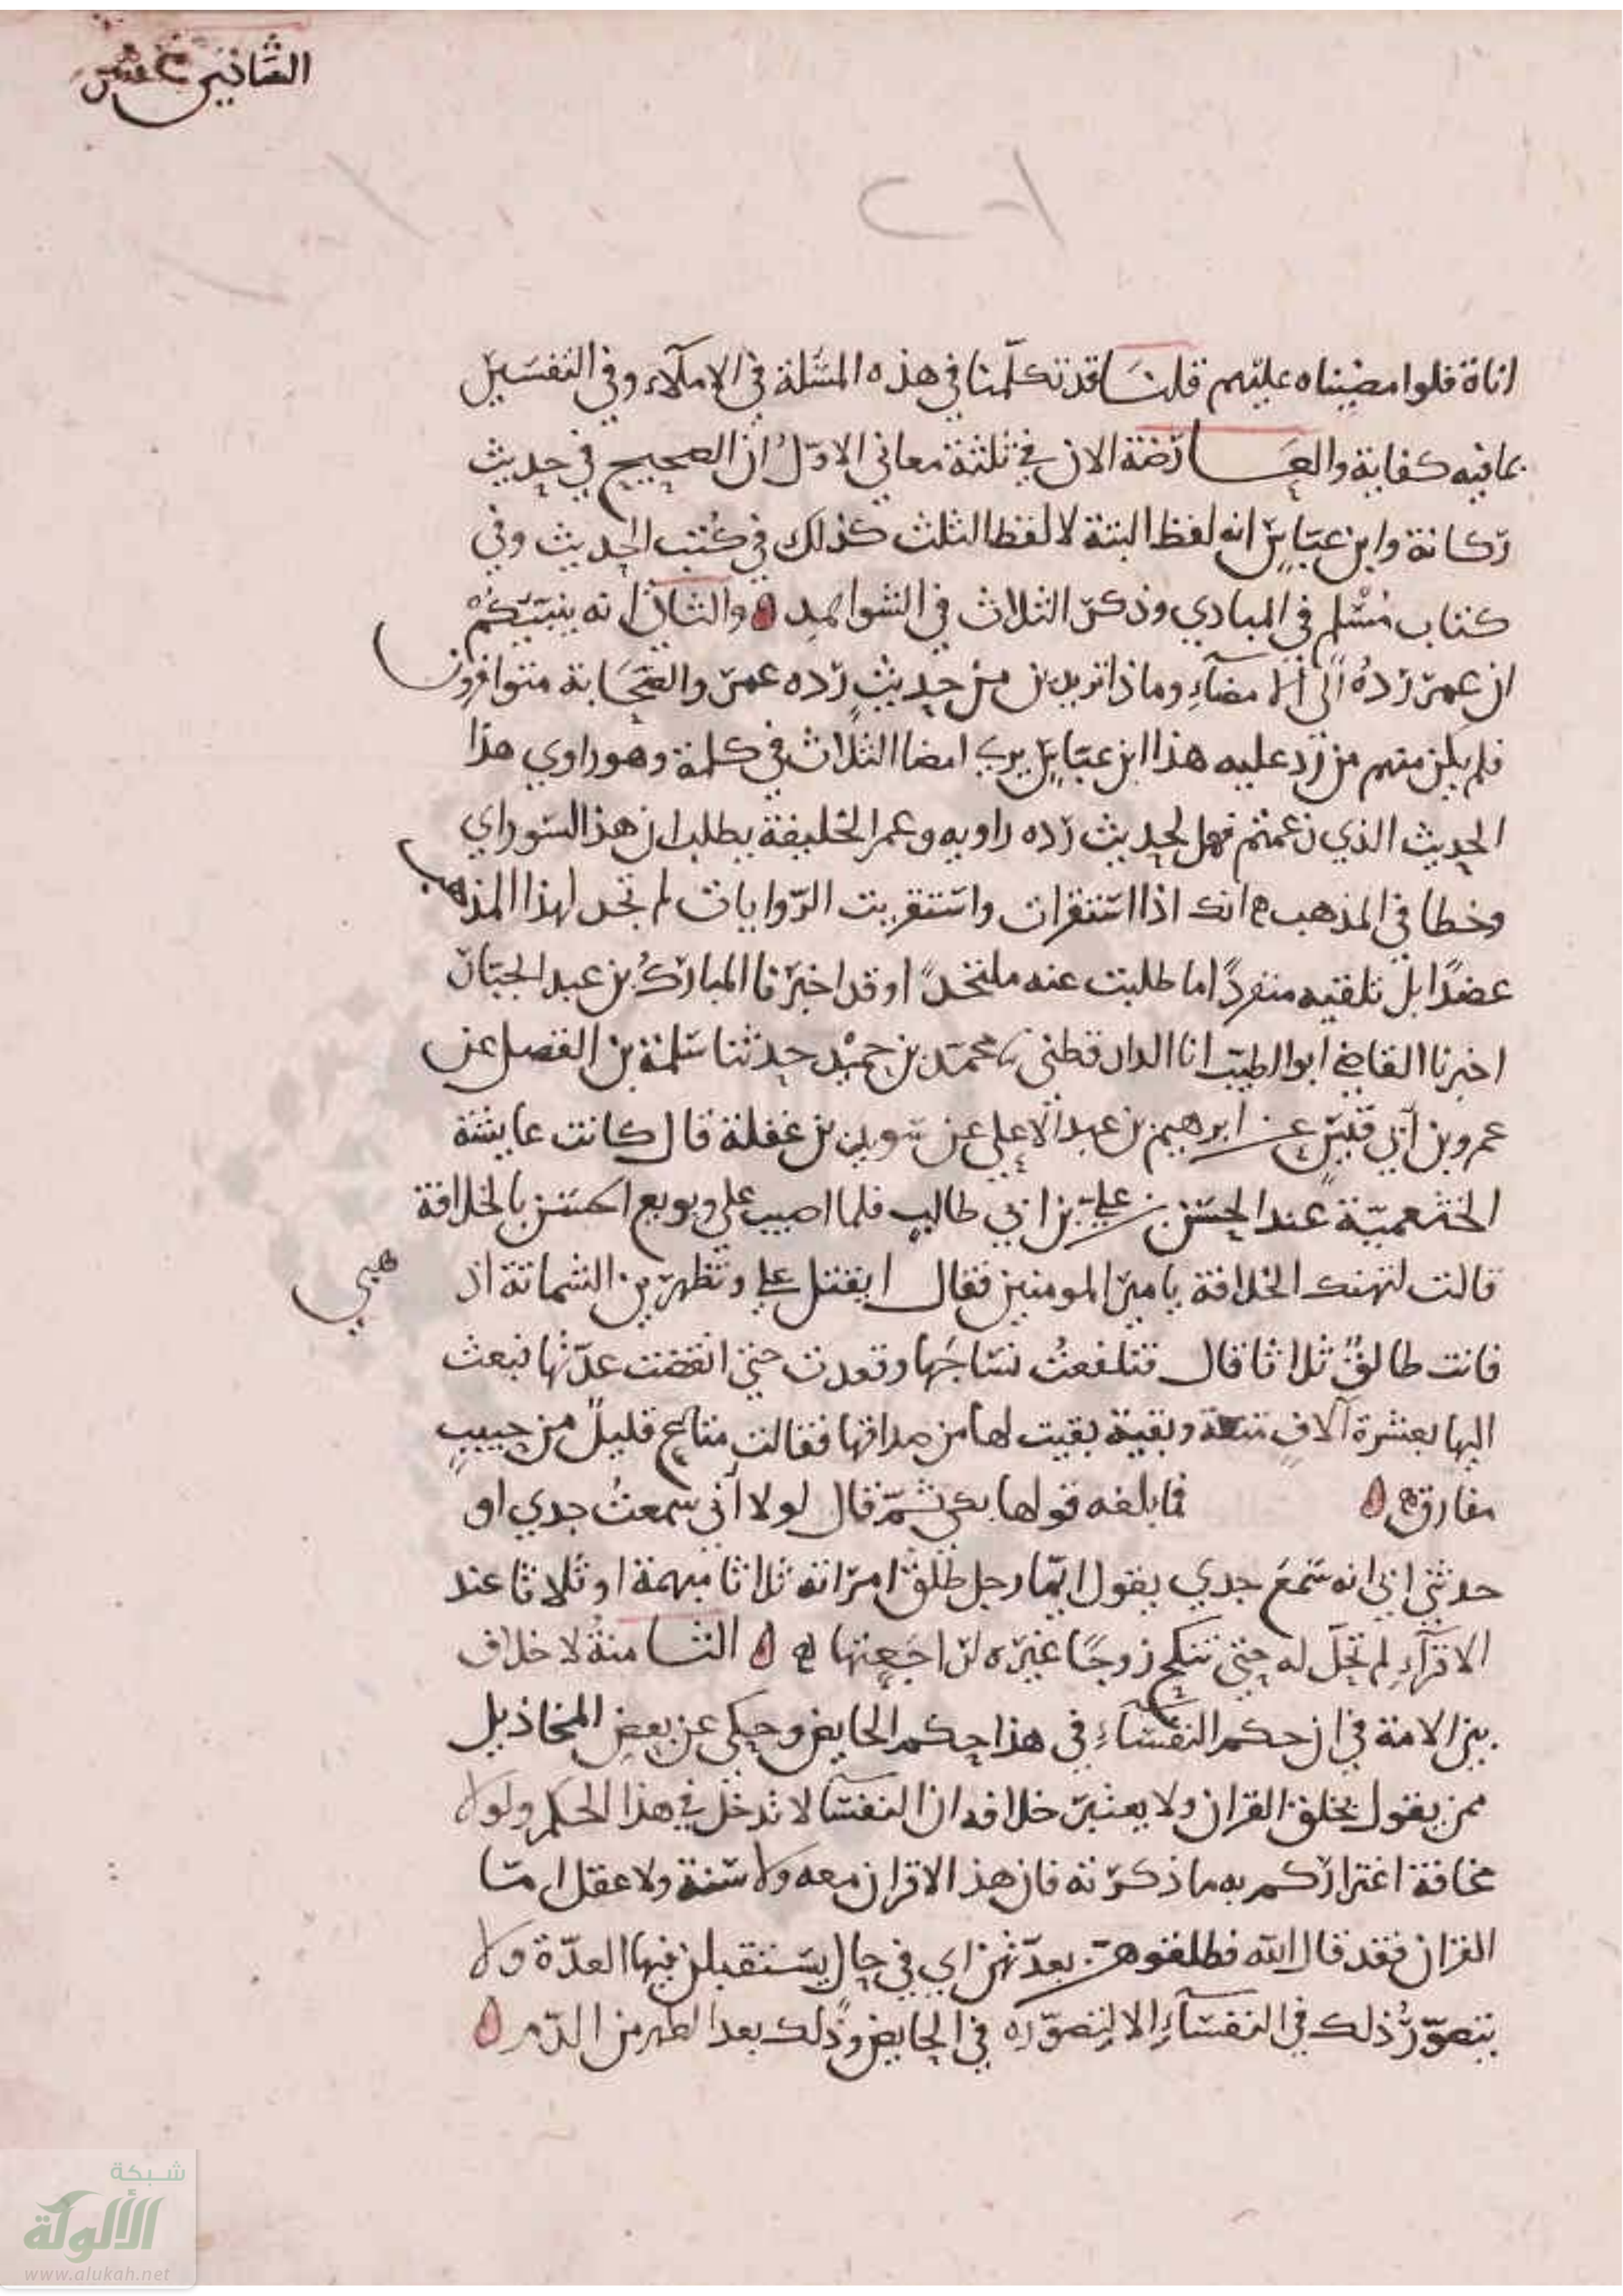 الثاني عشر
اناة فلوا مضيناه عليهم قلنا قد تكلمنا في هذه المسئلة في الاملاء وفي التفسير
بما فيه كفاية والعارضة الان في ثلثة معاني الاوّل ان الصحيح في حديث
ركانة وابن عبّاس انه لفظ البتة لا لفظ الثلث كذلك في كُتب الحديث وفي
كتاب مُسْلم في المبادي وذكر الثلاث في الشواهد والثاني انه ينبّئكُمْ
ان عمر ردهُ الى الامضاءِ وماذا تريدون من حديثٍ رده عمر والصّحَابة متوافرون
فلم يكن منهم من رد عليه هذا ابن عبّاس يري امضا الثلاث في كلمة وهو راوي هذا
الحديث الذي زعمتم فهل لحديث رده راويه وعمر الخليفة يطلب ان هذا السوراي
وخطا في المذهب انك اذا استقرات واستقريت الرّوايات لم تجد لهذا المذهب
عضدًا بل تلقيه منفردًا ما طلبت عنه ملتحدًا وقد اخبرنا المباركُ بن عبد الجبّار
اخبرنا القاضي ابو الطيّب انا الدارقطني محمّد بن حميْد حدثنا سلمة بن الفضل عن
عمرو بن أبي قيس عن ابرهيم بن عبد الاعلي عن سويد بن غفلة قال كانت عايشة
الخثعميّة عند الحسن بن علي بن ابي طالب فلما اصيب علي وبويع الحسن بالخلافة
قالت لتهنك الخلافة يامير المومنين فقال ايقتل علي وتظهرين الشماتة اذ هبي
فانت طالقٌ ثلاثا قال فتلفعتُ نساجَها وقعدت حتي انقضت عدّتُها فبعث
اليها بعشرة آلافٍ متعة وبقية بقيت لها من صداقها فقالت متاع قليلٌ من حبيبٍ
مفارق فما بلغه قولها بكي ثمّ قال لولا أني سمعتُ جدي او
حدثني ابي انه سَمعَ جدي يقول ايّما رجل طلّق امراته ثلاثا مبهمة او ثلاثا عند
الاقرآءِ لم تحلّ له حتي تنكح زوجًا غيره لراجعتها الثامنةُ لا خلاف
بين الامة في ان حكم النفسآءِ في هذا حكم الحايض وحكي عن بعض المخاذيل
ممن يقول بخلق القران ولا يعتبر خلافه ان النفسا لا تدخل في هذا الحكم ولولا
مخافة اغتراركم به ما ذكرته فان هذ الاقران معه ولا سنة ولا عقل امّا
القران فقد قال الله فطلقوهن بعدّتهن اي في حال يستقبلن فيها العدّة ولا
يتصوّرُ ذلك في النفسآءِ الا لتصوّره في الحايض وذلك بعد الطهر من الدّم
شبكة
الألوكة
www.alukah.net